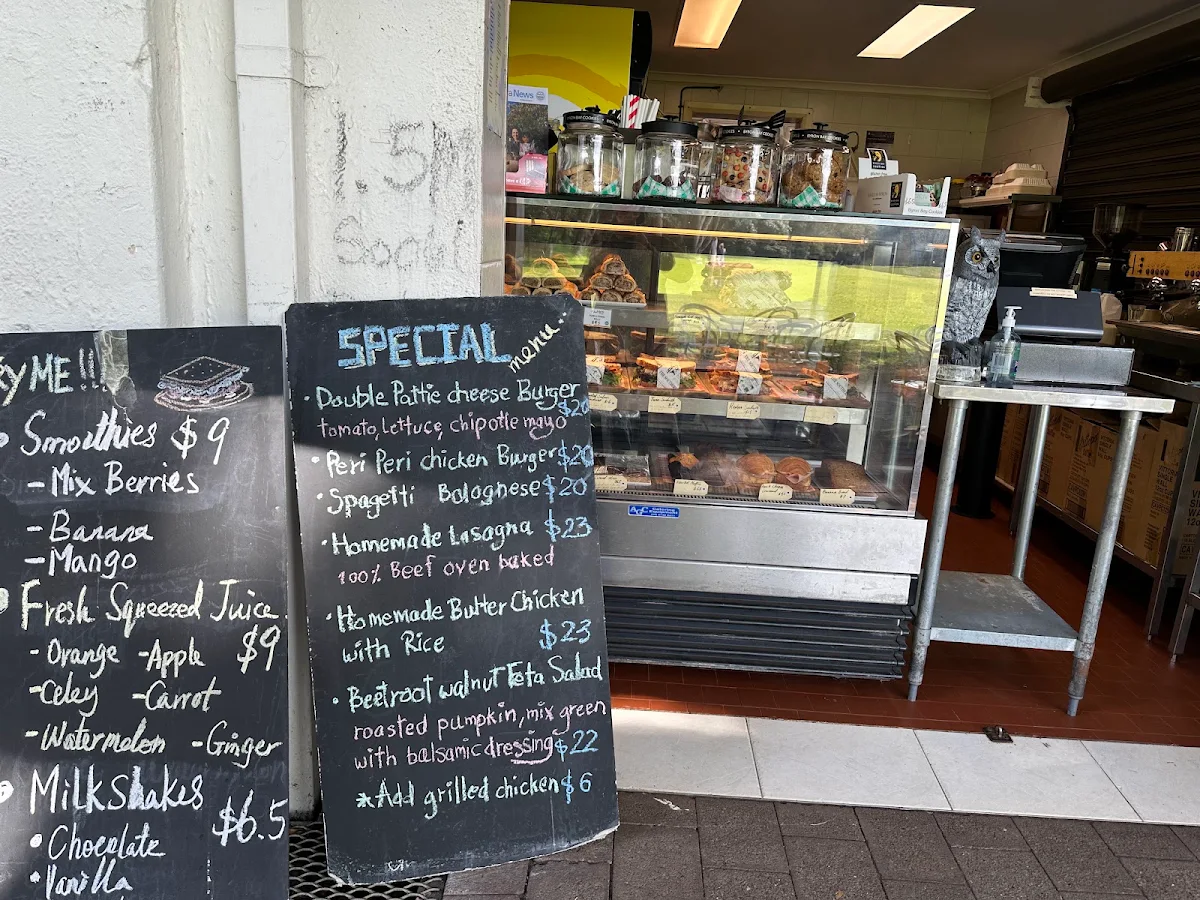 1.5M
a News
BYRON BAY COOKIES
y ME!!
• Smoothies $9
- Mix Berries
- Banana
- Mango
• Fresh Squeezed Juice
$9
- Orange - Apple
- Celey - Carrot
- Watermelon - Ginger
• Milkshakes
$6.5
• Chocolate
• Vanilla
SPECIAL menu
• Double Pattie cheese Burger
$20
tomato, lettuce, chipotle mayo
• Peri Peri chicken Burger $20
• Spagetti Bolognese $20
• Homemade Lasagna $23
100% Beef oven baked
• Homemade Butter Chicken
with Rice $23
• Beetroot walnut Feta Salad
roasted pumpkin, mix green
with balsamic dressing $22
*Add grilled chicken $6